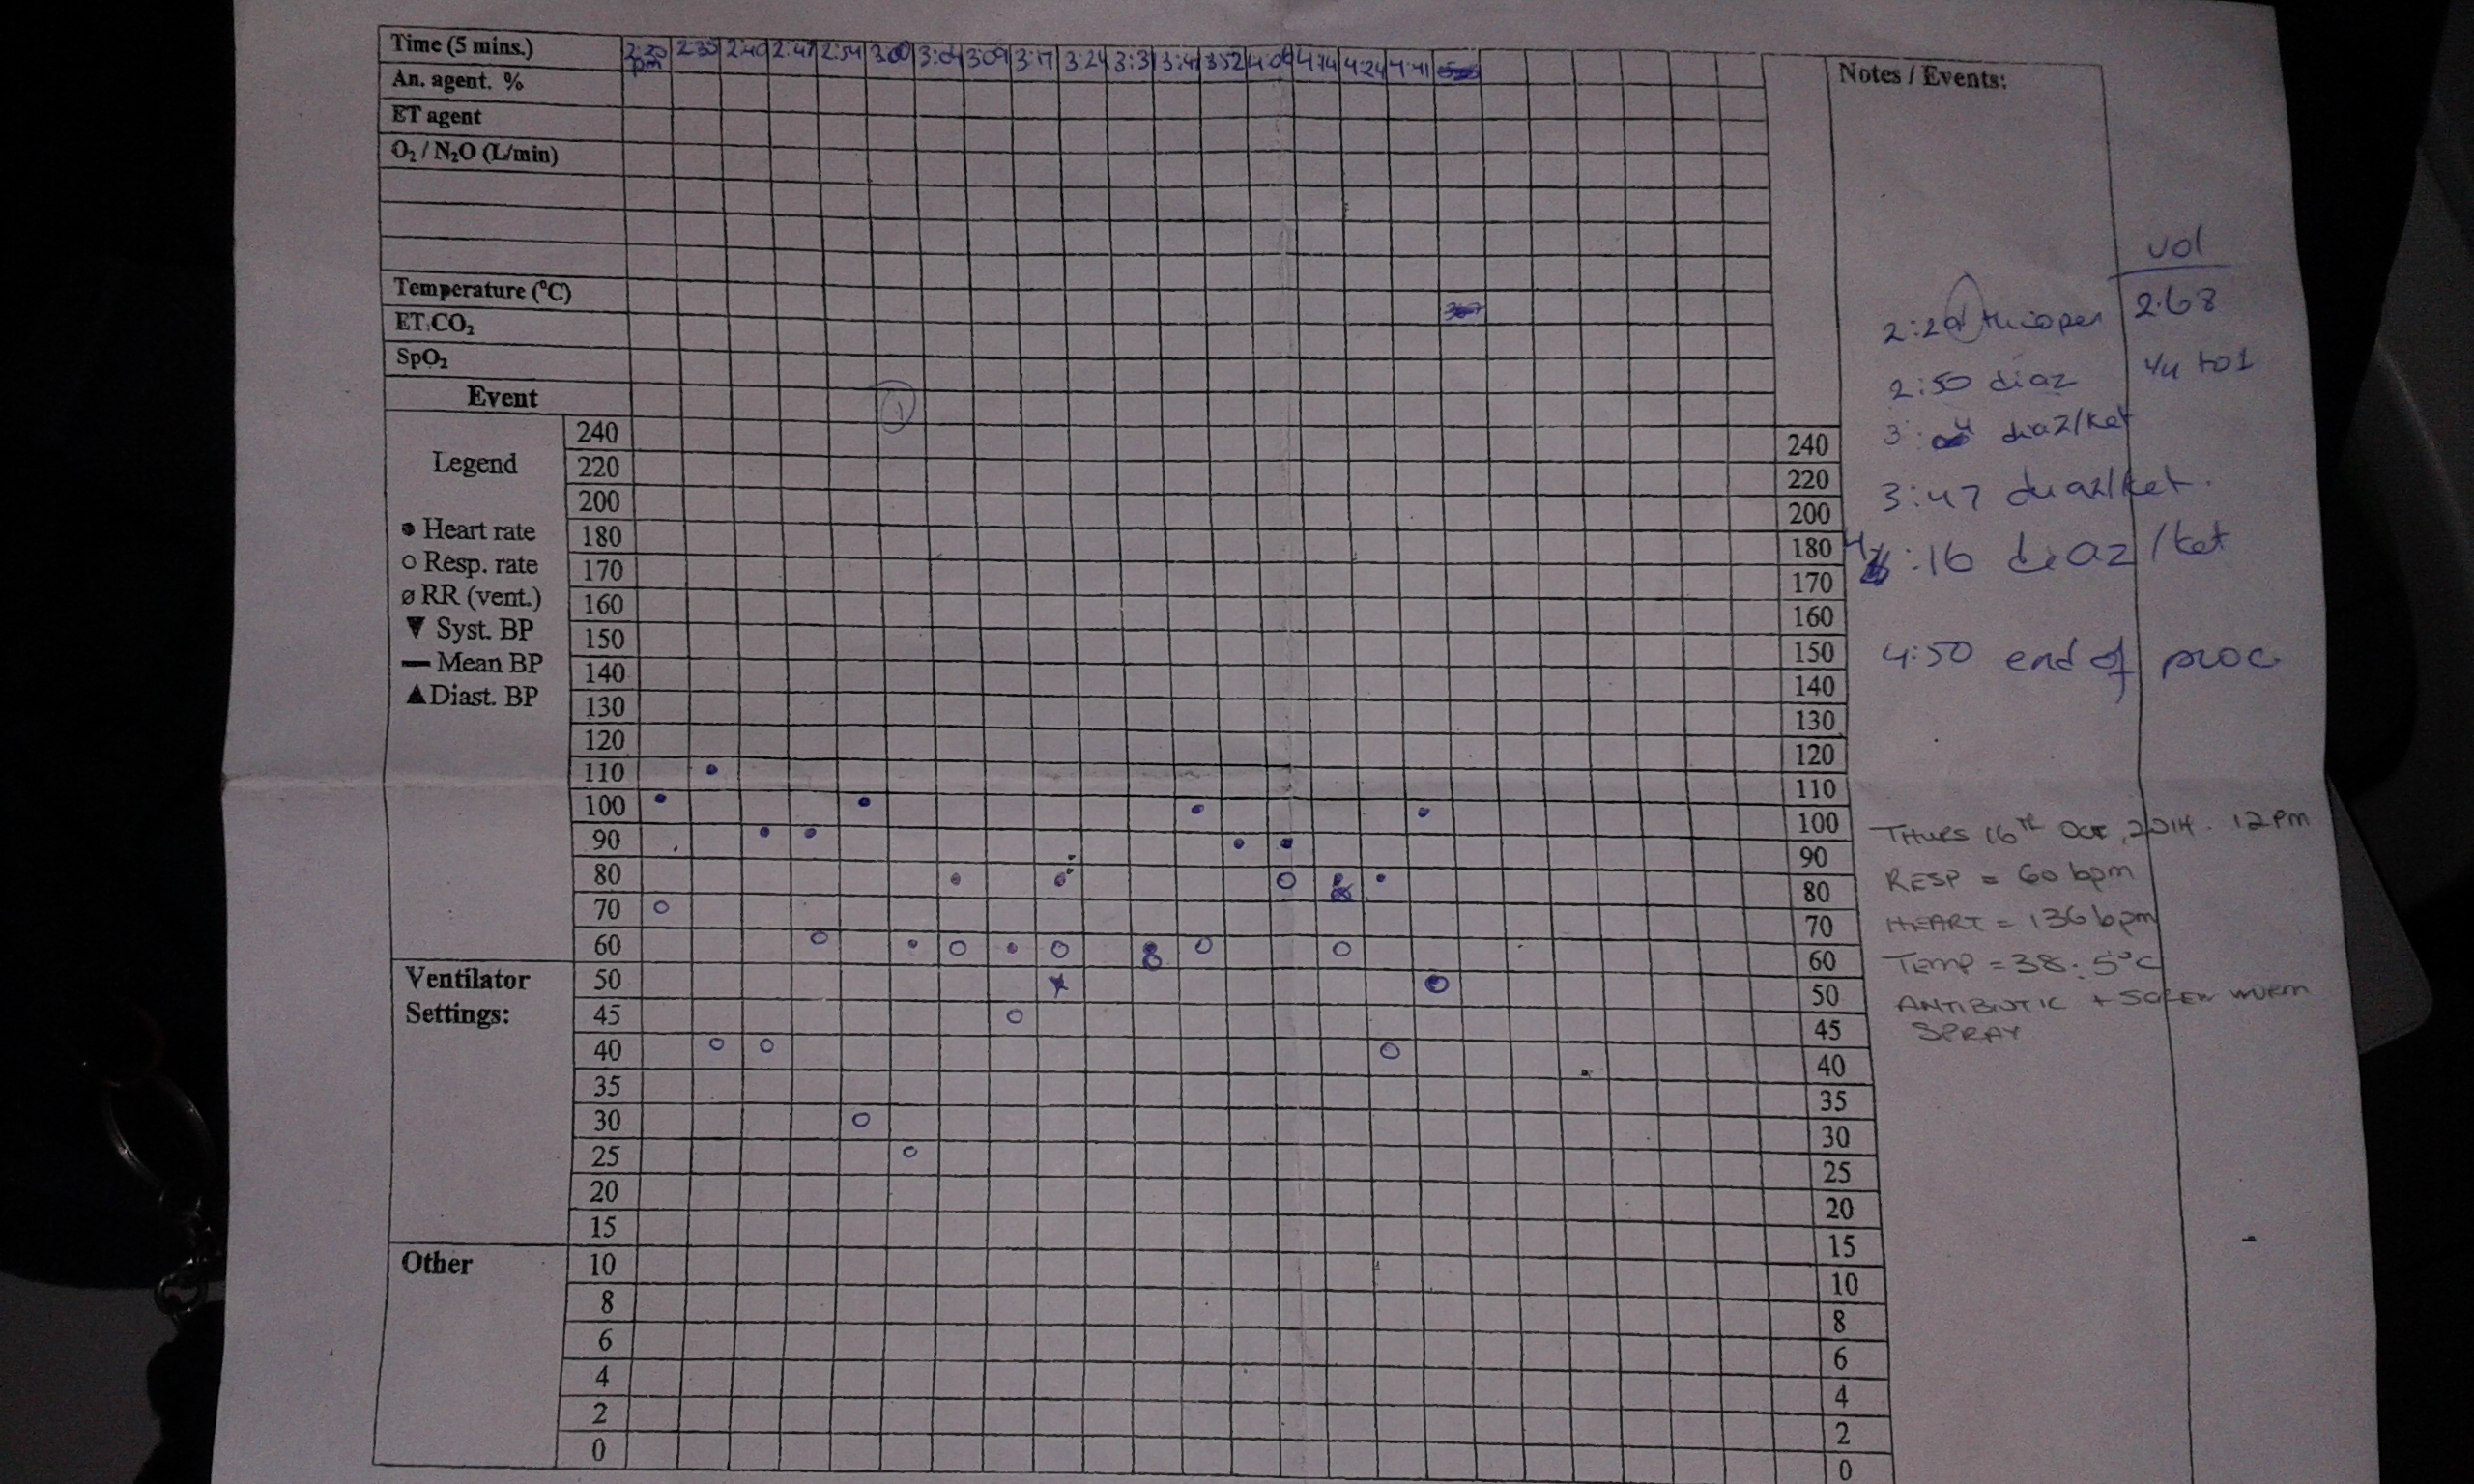 Time (5 mins.) 2:35 2:40 2:47 2:54 3:00 3:04 3:09 3:17 3:24 3:31 3:47 3:52 4:06 4:14 4:24 4:41
An. agent. %
ET agent
O₂ / N₂O (L/min)
Temperature (°C)
ET CO₂
SpO₂
Event
1
Legend
● Heart rate
○ Resp. rate
ø RR (vent.)
▼ Syst. BP
— Mean BP
▲ Diast. BP
Ventilator
Settings:
Other
240
220
200
180
170
160
150
140
130
120
110
100
90
80
70
60
50
45
40
35
30
25
20
15
10
8
6
4
2
0
240
220
200
180
170
160
150
140
130
120
110
100
90
80
70
60
50
45
40
35
30
25
20
15
10
8
6
4
2
0
Notes / Events:
vol
thiopen 2.68
2:50 diaz 1/4 to 1
diaz/ket
3:47 diaz/ket.
4:16 diaz/ket
4:50 end of proc
THURS 16TH OCT, 2014. 12PM
RESP = 60 bpm
HEART = 136 bpm
TEMP = 38.5°C
ANTIBIOTIC + SCREW WORM
SPRAY